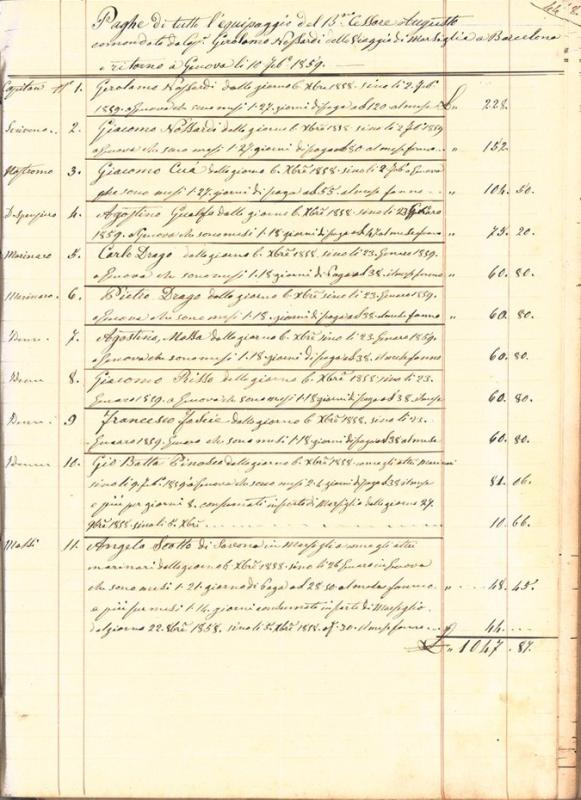 Paghe di tutto l'equipaggio del B.co Cesare Augusto
comandato da Cap. Gerolamo Nossardi nello Viaggio di Marsiglia a Barcelona
e ritorno a Genova li 10 Feb. 1859.
Capitan nº 1. Gerolamo Nossardi dalle giorno 6. Xbre 1858. sino li 2. Feb.
1859. a Genova che sono mesi 1:27. giorni di paga ad 120 al mese £ 228.
Scrivano. 2. Giacomo Nossardi dalle giorno 6. Xbre 1858 sino li 2 Feb. 1859
a Genova che sono mesi 1:27. giorni di paga ad 80 al mese fanno " 152
Nostromo 3. Giacomo Cuá dalle giorno 6. Xbre 1858 sino li 2 Feb. a Genova
che sono mesi 1:27. giorni di paga ad 55. al mese fanno " 104. 50.
Dispensiero 4. Agostino dalle giorno 6. Xbre 1858. sino li 23
1859. a Genova che sono mesi 1:18 giorni di paga ad 47 al mese fanno " 75. 20.
Marinaro 5. Carlo Drago dalle giorno 6. Xbre 1858. sino li 23. Genaro 1859.
a Genova che sono mesi 1:18 giorni di Paga ad 38. al mese fanno " 60. 80.
Marinaro. 6. Pietro Drago dalle giorno 6. Xbre sino li 23. Genaro 1859.
a Genova che sono mesi 1:18. giorni di paga ad 38. al mese fanno " 60. 80.
7. Agostino Massa dalle giorno 6. Xbre sino li 23. Genaro 1859.
a Genova che sono mesi 1:18. giorni di paga ad 38. al mese fanno 60. 80.
8. Giacomo Risso dalle giorno 6. Xbre 1858 sino li 23.
Genaro 1859. a Genova che sono mesi 1:18 giorni di paga ad 38. al mese 60. 80.
9 Francesco dalle giorno 6. Xbre 1858. sino li 23.
Genaro 1859. Genova che sono mesi 1:18 giorni di paga ad 38 al mese 60. 80.
10. Gio Batta dalle giorno 6. Xbre 1858. come gli altri Marinari
sino li 9. Feb. 1859 a Genova che sono mesi 2:4 giorni di paga ad 38 al mese 81. 06.
e più per giorni 8. consumati in porto di Marsiglia dalle giorno 27.
9bre 1858 sino li 5. Xbre 10. 66.
11. Angelo Scotto di Savona in Marsiglia come gli altri
marinari dalle giorno 6. Xbre 1858. sino li 26 Genaro in Genova
che sono mesi 1:21. giorno di Paga ad 28.50 al mese fanno " 48. 45.
e più per mesi 1:14. giorni consumati in porto di Marsiglia
dal giorno 22. 8bre 1858. sino li 5. Xbre 1858. 30. al mese fanno 44.
£ " 1047. 87.